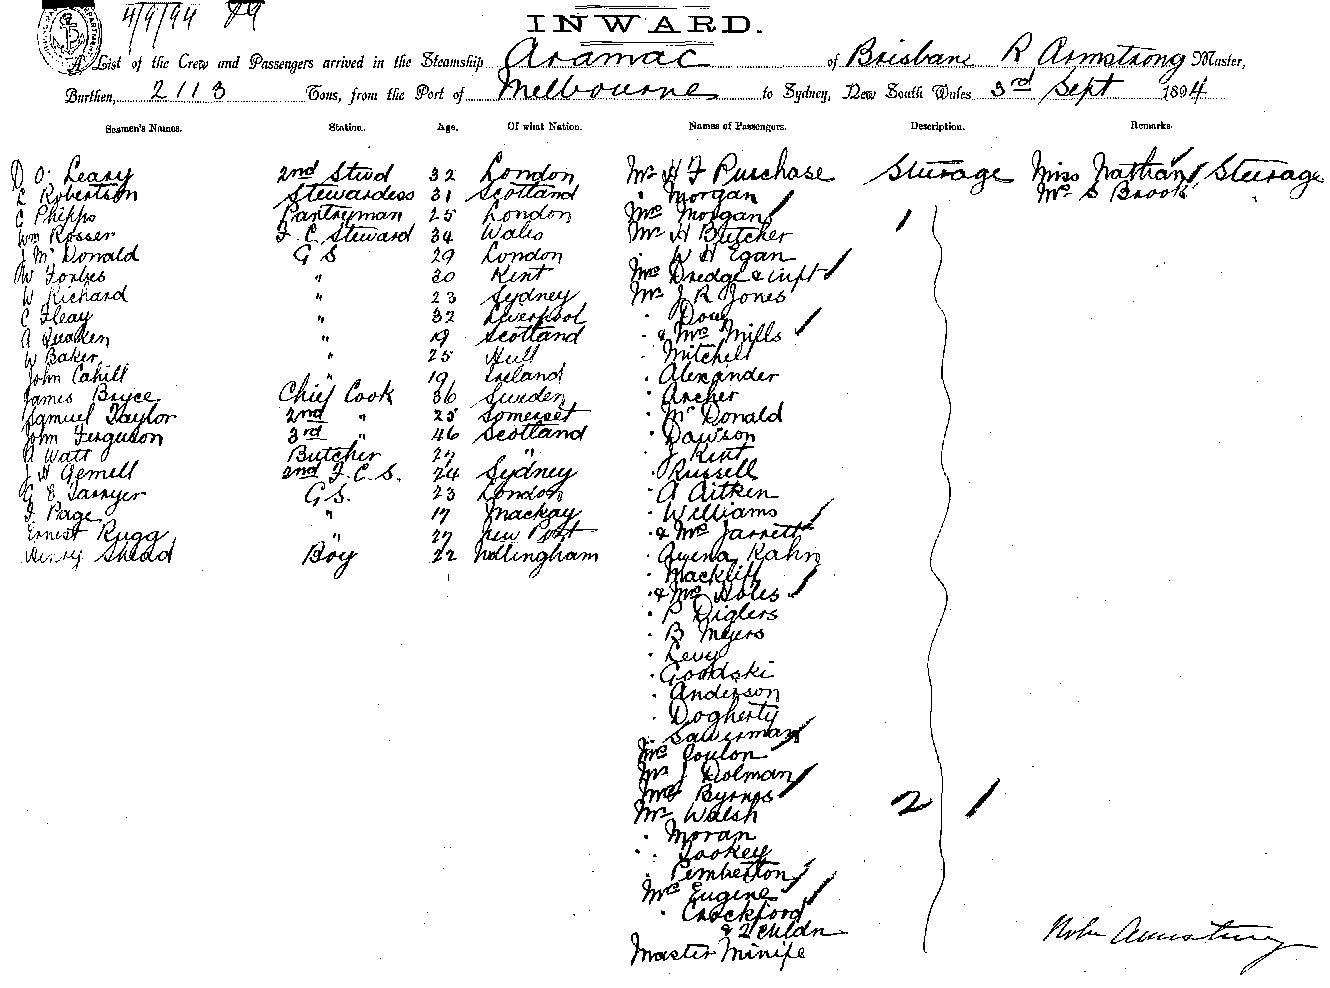 4/9/94 79
INWARD.
A List of the Crew and Passengers arrived in the Steamship Aramac of Brisbane R Armstrong Master,
Burthen, 2113 Tons, from the Port of Melbourne to Sydney, New South Wales 3rd Sept 1894
Seamen's Names. Station. Age. Of what Nation. Names of Passengers. Description. Remarks.
D O. Leary 2nd Stwd 32 London Mr H F Purchase Steerage Miss Nathan Steerage
E Robertson Stewardess 31 Scotland " Morgan Mr S Brook "
C Phipps Pantryman 25 London Mrs Morgan 1
Wm Rosser F. C. Steward 34 Wales Mr H Butcher
J McDonald G S 29 London " W H Egan
W Forbes " 30 Kent Mrs Dredge & inft
W Richard " 23 Sydney Mr J R Jones
C Fleay " 32 Liverpool " Doug
A " 19 Scotland " & Mrs Mills
W Baker " 25 Hull " Mitchell
John Cahill " 19 Ireland " Alexander
James Bryce Chief Cook 36 Sweden " Archer
Samuel Taylor 2nd " 25 Somerset " McDonald
John Ferguson 3rd " 46 Scotland " Dawson
A Watt Butcher 27 " " J Kent
J H Gemell 2nd F. C. S. 24 Sydney " Russell
G E Tarryer G S. 23 London " A Aitken
F Page " 17 Mackay " Williams
Ernest Rugg " 27 New Port " & Mrs Jarrett
Henry Shead Boy 22 Nottingham " Kahn
" Mackliff
" & Mrs Holes
" P Diglers
" B Meyers
" Levy
" Goodski
" Anderson
" Dogherty
" Sawerman
Mrs Coulon
Mr J Dolman
Mrs Byrnes 2 1
Mr Walsh
" Moran
" Lookey
" Pemberton
Mrs Eugene
" Crockford
& 2 childn
Master Minife
Armstrong